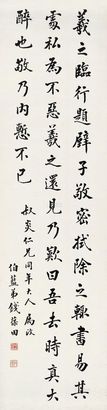 羲之臨行題壁子敬密拭除之輒書易其
處私為不惡羲之還見乃歎曰吾去時真大
醉也敬乃內慙不已
叔奕仁兄同年大人屬政
伯藍弟錢葆田